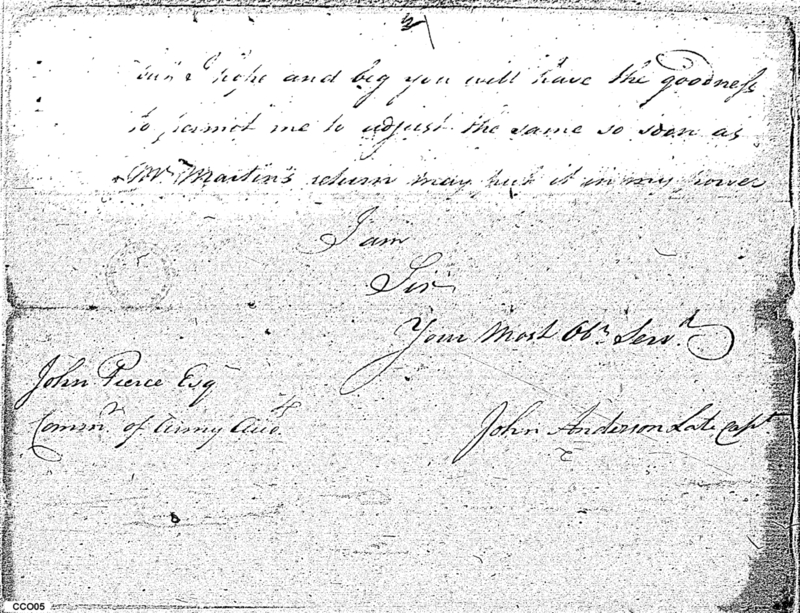 2
I hope and beg you will have the goodness
to permit me to adjust the same so soon as
Mr Martin's return may put it in my power
I am
Sir
Your Most Obt Servt
John Pierce Esq
Commr of Army Accts
John Anderson Late Capt
CCO05